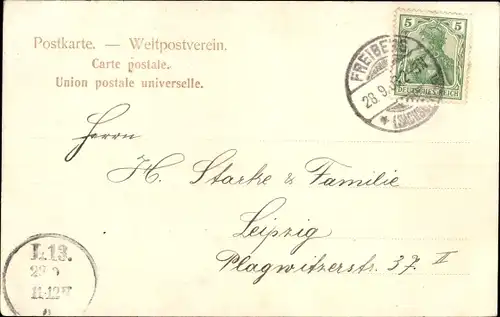 Postkarte. — Weltpostverein.
Carte postale.
Union postale universelle.
5 5
DEUTSCHES REICH
FREIBERG
28.9.
(SACHSEN)
Herrn
H. Starke & Familie
Leipzig
Plagwitzerstr. 37. II
L 13.
11-12 V